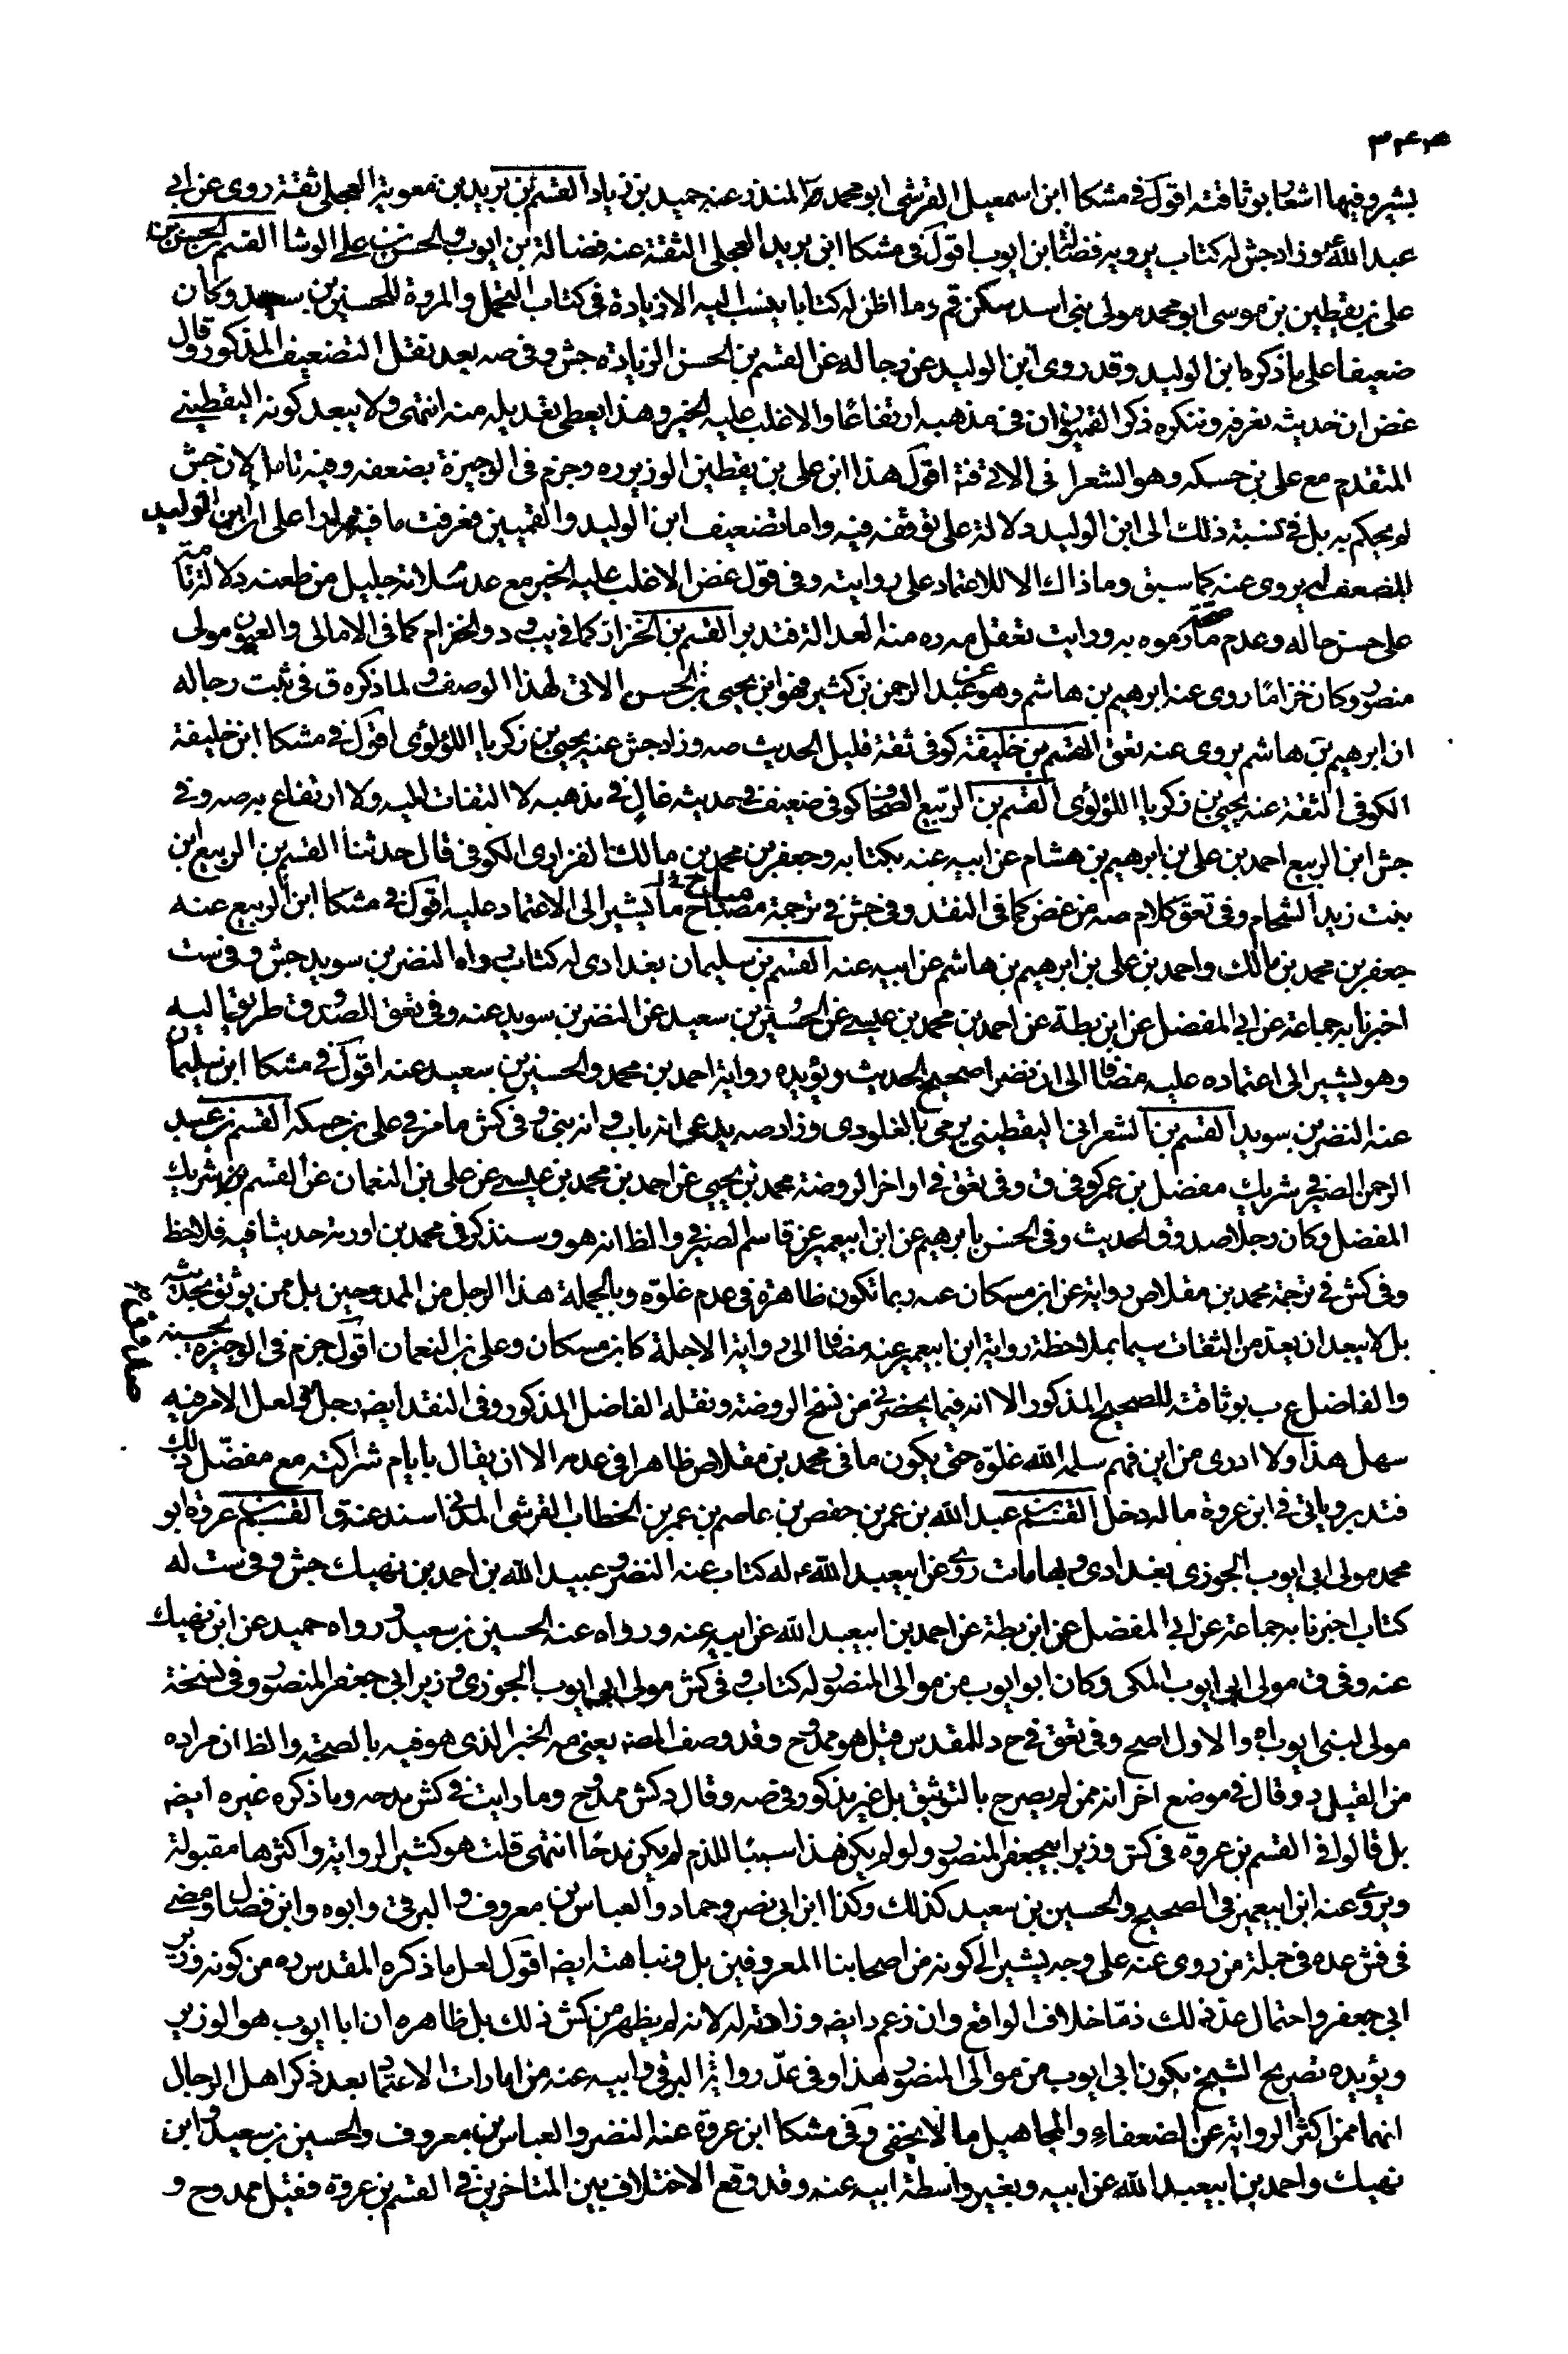 بشير وفيها اشعار بوثاقته اقول في مشكا ابن اسمعيل القرشي ابو محمد المنذر عنه حميد بن زياد القسم بن بريد بن معوية العجلي ثقة روى عن ابي
عبد الله وزاد جش له كتاب يرويه فضالة ابن ايوب اقول في مشكا ابن بريد العجلي الثقة عنه فضالة بن ايوب والحسن بن علي الوشا القسم بن الحسن بن
علي بن يقطين بن موسى ابو محمد مولى بني اسد سكن قم وما اظن له كتابا ينسب اليه الا زيادة في كتاب التجمل والمروة للحسين بن سعيد وكان
ضعيفا على ما ذكره ابن الوليد وقد روى ابن الوليد عن رجاله عن القسم بن الحسن الزيادة جش وفي صه بعد نقل التضعيف المذكور وقال
غض ان حديثه نعرفه وننكره ذكر القميون ان في مذهبه ارتفاعا والاغلب عليه الخير وهذا يعطي تعديله منه انتهى ولا يبعد كونه اليقطيني
المتقدم مع علي بن حسكه وهو الشعراني الاتي فتد اقول هذا ابن علي بن يقطين الوزير ره وجزم في الوجيزة بضعفه وفيه تامل لان جش
لم يحكم به بل في نسبة ذلك الى ابن الوليد دلالة على توقفه فيه واما تضعيف ابن الوليد والقميين فعرفت ما فيه مرارا على ان ابن الوليد
المضعف له يروي عنه كما سبق وما ذاك الا للاعتماد على روايته وفي قول غض الاغلب عليه الخير مع عدم سلامة جليل من طعنه دلالة تامة
على حسن حاله وعدم صحة ما رموه به ورايت تعقل صه ره منه العدالة فتدبر القسم بن الخزاز كما في يب وفي د والخزام كما في الامالي والعيون مولى
منصور وكان خزاما روى عنه ابرهيم بن هاشم وهو عن عبد الرحمن بن كثير فهو ابن يحيى بن الحسن الاتي لهذا الوصف ولما ذكره ق في ثبت رجاله
ان ابرهيم بن هاشم يروي عنه تعق القسم بن خليفة كوفي ثقة قليل الحديث صه وزاد جش عنه يحيى بن زكريا اللؤلؤي اقول في مشكا ابن خليفة
الكوفي الثقة عنه يحيى بن زكريا اللؤلؤي القسم بن الربيع الصحاف كوفي ضعيف في حديثه غال في مذهبه لا التفات اليه ولا ارتفاع به صه وفي
جش ابن الربيع احمد بن علي بن ابرهيم بن هشام عن ابيه عنه بكتابه وجعفر بن محمد بن مالك الفزاري الكوفي قال حدثنا القسم بن الربيع ابن
بنت زيد الشحام وفي تعق كلام صه من غض كما في النقد وفي جش في ترجمة مصباح مياح ما يشير الى الاعتماد عليه اقول في مشكا ابن الربيع عنه
جعفر بن محمد بن مالك واحمد بن علي بن ابرهيم بن هاشم عن ابيه عنه القسم بن سليمان بغدادي له كتاب رواه النضر بن سويد جش وفي ست
اخبرنا به جماعة عن ابي المفضل عن ابن بطة عن احمد بن محمد بن عيسى عن الحسين بن سعيد عن النضر بن سويد عنه وفي تعق للصدوق طريق اليه
وهو يشير الى اعتماده عليه مضافا الى ان نضرا صحيح الحديث ويؤيده رواية احمد بن محمد والحسين بن سعيد عنه اقول في مشكا ابن سليمان
عنه النضر بن سويد القسم بن الشعراني اليقطيني يرمى بالغلو دي وزاد صه يدعي انه باب وانه نبي وفي كش ما مر في علي بن حسكه القسم بن عبد
الرحمن الصيرفي شريك مفضل بن عمر كوفي ق وفي تعق في اواخر الروضة محمد بن يحيى عن احمد بن محمد بن عيسى عن علي بن النعمان عن القسم شريك
المفضل وكان رجل صدوق الحديث وفي الحسن بابرهيم عن ابن ابيعمير عن قاسم الصيرفي والظ انه هو وسنذكر في محمد بن اورمة حديثا فيه فلاحظ
وفي كش في ترجمة محمد بن مقلاص رواية عن ابن مسكان عنه ربما تكون ظاهرة في عدم غلوه وبالجملة هذا الرجل من الممدوحين بل ممن يوثق بحديثه
بل لا يبعد ان يعد من الثقات سيما بملاحظة رواية ابن ابيعمير عنه مضافا الى رواية الاجلة كابن مسكان وعلي بن النعمان اقول جزم في الوجيزة بحسنه
والفاضل ع ب بوثاقته للصحيح المذكور الا انه فيما يحضرني من نسخ الروضة ونقله الفاضل المذكور وفي النقد ايضه رجل ولعل الامر فيه
سهل هذا ولا ادري من اين فهم سلمه الله غلوه حتى يكون ما في محمد بن مقلاص ظاهرا في عدمه الا ان يقال بايام شراكته مع مفضل ذلك
فتدبر وياتي في ابن عروة ما له دخل القسم بن عبد الله بن عمر بن حفص بن عاصم بن عمر بن الخطاب القرشي المدني اسند عنه ق القسم بن عروة ابو
محمد مولى ابي ايوب الجوزي بغدادي وبها مات روى عن ابيعبد الله ع له كتاب عنه النضر وعبيد الله بن احمد بن نهيك جش وفي ست له
كتاب اخبرنا به جماعة عن ابي المفضل عن ابن بطة عن احمد بن ابيعبد الله عن ابيه عنه ورواه عنه الحسين بن سعيد ورواه حميد عن ابن نهيك
عنه وفي ق مولى ابي ايوب المكي وكان ابو ايوب من موالي المنصور له كتاب وفي كش مولى ابي ايوب الجوزي وزير ابي جعفر المنصور وفي نسخة
مولى لبني ايوب اه والاول اصح وفي تعق في ح د للمقدس قيل هو ممدوح وقد وصف المصنه يعني صه الخبر الذي هو فيه بالصحة والظ ان مراده
من القيل د وقال في موضع اخر انه ممن لم يصرح بالتوثيق بل غير مذكور في صه وقال د كش ممدوح وما رايت في كش مدحه وما ذكره غيره ايضه
بل قالوا في القسم بن عروة في كش وزير ابيجعفر المنصور ولو لم يكن هذا سببا للذم لم يكن مدحا انتهى قلت هو كثير الرواية واكثرها مقبولة
ويروي عنه ابن ابيعمير في الصحيح والحسين بن سعيد كذلك وكذا ابن ابي نصر وحماد والعباس بن معروف والبرقي وابوه وابن فضال ومضى
في فش عده في جملة من روى عنه على وجه يشير الى كونه من اصحابنا المعروفين بل ونباهته ايضه اقول لعل ما ذكره المقدس ره من كونه وزير
ابي جعفر واحتمال عد ذلك ذما خلاف الواقع وان زعمه د ايضه وزاده له لانه لم يظهر من كش ذلك بل ظاهره ان ابا ايوب هو الوزير
ويؤيده تصريح الشيخ بكون ابي ايوب من موالي المنصور هذا وفي عد رواية البرقي وابيه عنه من امارات الاعتماد بعد ذكر اهل الرجال
انهما ممن اكثر الرواية عن الضعفاء والمجاهيل ما لا يخفى وفي مشكا ابن عروة عنه النضر والعباس بن معروف والحسين بن سعيد وابن
نهيك واحمد بن ابيعبد الله عن ابيه وبغير واسطة ابيه عنه وقد وقع الاختلاف بين المتاخرين في القسم بن عروة فقيل ممدوح و